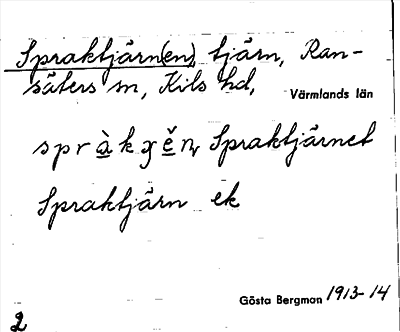 Spraktjärn(en), tjärn, Ran-
säters sn, Kils hd, Värmlands län
Spraktjärnet
Spraktjärn ek
Gösta Bergman 1913-14
2